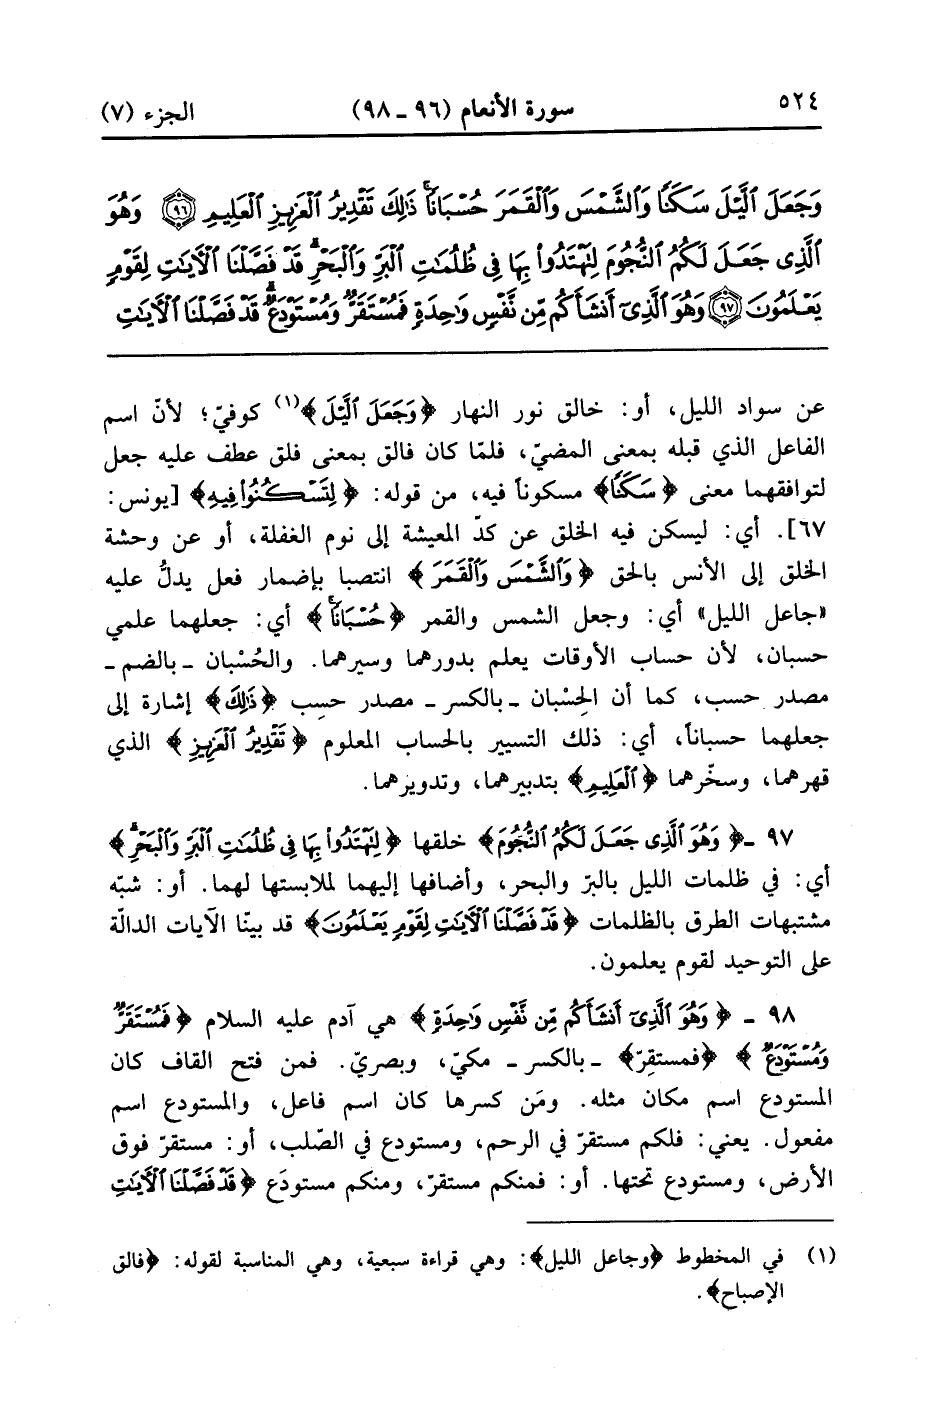 ٥٢٤ سورة الأنعام (٩٦ ـ ٩٨) الجزء (٧)
وَجَعَلَ الَّيْلَ سَكَنًا وَالشَّمْسَ وَالْقَمَرَ حُسْبَانًا ذَٰلِكَ تَقْدِيرُ الْعَزِيزِ الْعَلِيمِ ﴿٩٦﴾ وَهُوَ
الَّذِى جَعَلَ لَكُمُ النُّجُومَ لِتَهْتَدُوا بِهَا فِى ظُلُمَٰتِ الْبَرِّ وَالْبَحْرِ قَدْ فَصَّلْنَا الْآيَٰتِ لِقَوْمٍ
يَعْلَمُونَ ﴿٩٧﴾ وَهُوَ الَّذِىٓ أَنشَأَكُم مِّن نَّفْسٍ وَٰحِدَةٍ فَمُسْتَقَرٌّ وَمُسْتَوْدَعٌ قَدْ فَصَّلْنَا الْآيَٰتِ
عن سواد الليل، أو: خالق نور النهار ﴿وَجَعَلَ الَّيْلَ﴾(١) كوفيّ؛ لأنّ اسم
الفاعل الذي قبله بمعنى المضيّ، فلمّا كان فالق بمعنى فلق عطف عليه جعل
لتوافقهما معنى ﴿سَكَنًا﴾ مسكوناً فيه، من قوله: ﴿لِتَسْكُنُوا فِيهِ﴾ [يونس:
٦٧]. أي: ليسكن فيه الخلق عن كدّ المعيشة إلى نوم الغفلة، أو عن وحشة
الخلق إلى الأنس بالحق ﴿وَالشَّمْسَ وَالْقَمَرَ﴾ انتصبا بإضمار فعل يدلُّ عليه
«جاعل الليل» أي: وجعل الشمس والقمر ﴿حُسْبَانًا﴾ أي: جعلهما علمي
حسبان، لأن حساب الأوقات يعلم بدورهما وسيرهما. والحُسْبان ـ بالضم ـ
مصدر حسب، كما أن الحِسْبان ـ بالكسر ـ مصدر حسِب ﴿ذَٰلِكَ﴾ إشارة إلى
جعلهما حسباناً، أي: ذلك التسيير بالحساب المعلوم ﴿تَقْدِيرُ الْعَزِيزِ﴾ الذي
قهرهما، وسخّرهما ﴿الْعَلِيمِ﴾ بتدبيرهما، وتدويرهما.
٩٧ ـ ﴿وَهُوَ الَّذِى جَعَلَ لَكُمُ النُّجُومَ﴾ خلقها ﴿لِتَهْتَدُوا بِهَا فِى ظُلُمَٰتِ الْبَرِّ وَالْبَحْرِ﴾
أي: في ظلمات الليل بالبرّ والبحر، وأضافها إليهما لملابستها لهما. أو: شبّه
مشتبهات الطرق بالظلمات ﴿قَدْ فَصَّلْنَا الْآيَٰتِ لِقَوْمٍ يَعْلَمُونَ﴾ قد بينّا الآيات الدالّة
على التوحيد لقوم يعلمون.
٩٨ ـ ﴿وَهُوَ الَّذِىٓ أَنشَأَكُم مِّن نَّفْسٍ وَٰحِدَةٍ﴾ هي آدم عليه السلام ﴿فَمُسْتَقَرٌّ
وَمُسْتَوْدَعٌ﴾ ﴿فمستقِرّ﴾ ـ بالكسر ـ مكيّ، وبصريّ. فمن فتح القاف كان
المستودع اسم مكان مثله. ومَن كسرها كان اسم فاعل، والمستودع اسم
مفعول. يعني: فلكم مستقرّ في الرحم، ومستودع في الصّلب، أو: مستقرّ فوق
الأرض، ومستودع تحتها. أو: فمنكم مستقرّ، ومنكم مستودَع ﴿قَدْ فَصَّلْنَا الْآيَٰتِ
(١) في المخطوط ﴿وجاعل الليل﴾: وهي قراءة سبعية، وهي المناسبة لقوله: ﴿فالق
الإصباح﴾.